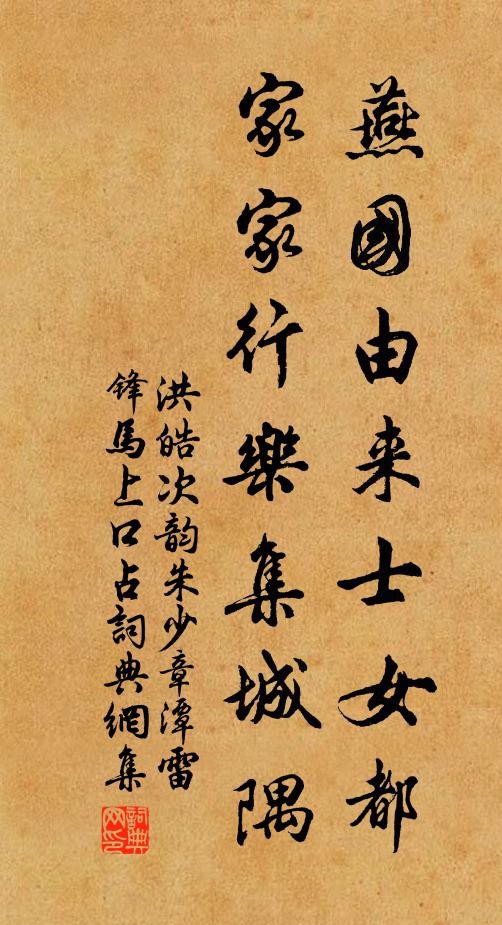 燕國由来士女都
家家行樂集城隅
洪皓次韵朱少章潭雷
鋒馬上口占詞典網集
詞典网印